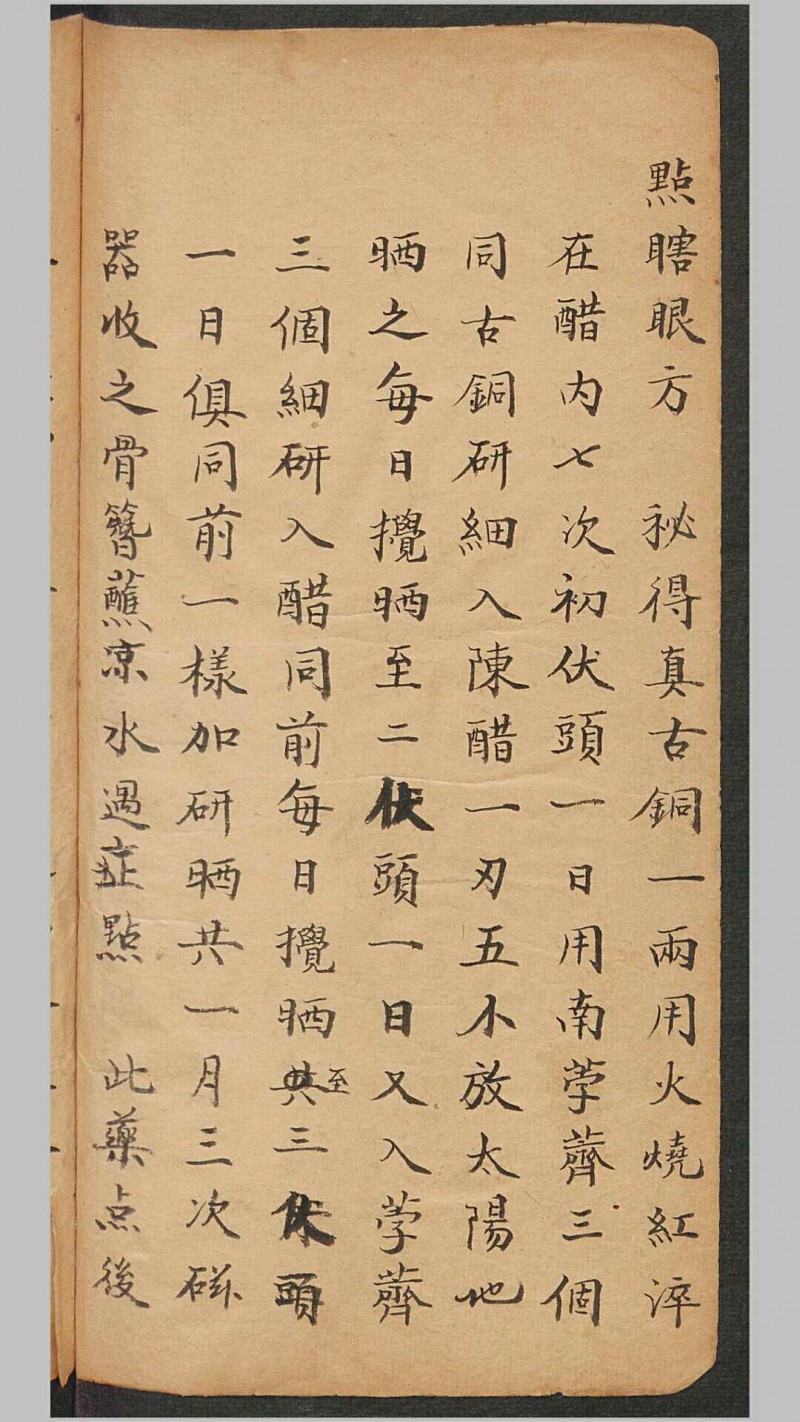 點瞎眼方 秘得真古銅一兩用火燒紅淬
在醋內七次初伏頭一日用南荸薺三個
同古銅研細入陳醋一刃五小放太陽地
晒之每日攪晒至二伏頭一日又入荸薺
三個細研入醋同前每日攪晒共至三伏頭
一日俱同前一樣加研晒共一月三次磁
器收之骨簪蘸凉水遇症點 此藥点後